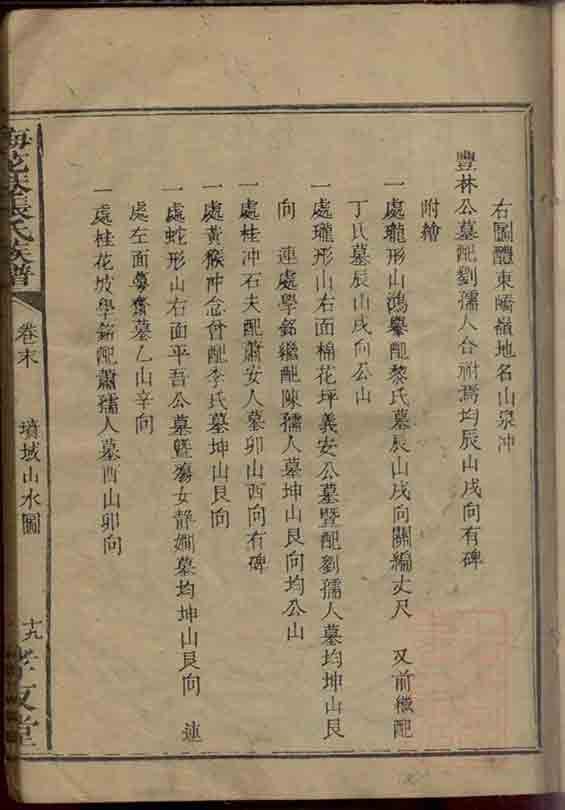 右圖醴東嶠嶺地名山泉冲
豐林公墓配劉孺人合祔焉均辰山戌向有碑
附繪
一處瓏形山鴻舉配黎氏墓辰山戌向關編丈尺 又前機配
丁氏墓辰山戌向公山
一處瓏形山右面棉花坪義安公墓暨配劉孺人墓均坤山艮
向 連處學銘繼配陳孺人墓坤山艮向均公山
一處桂冲石夫配蕭安人墓卯山酉向有碑
一處黃猴冲念曾配李氏墓坤山艮向
一處蛇形山右面平吾公墓暨殤女靜嫺墓均坤山艮向 連
處左面齋墓乙山辛向
一處桂花坡學銘配蕭孺人墓酉山卯向
張氏族譜 卷末 墳域山水圖 十九 孝友堂